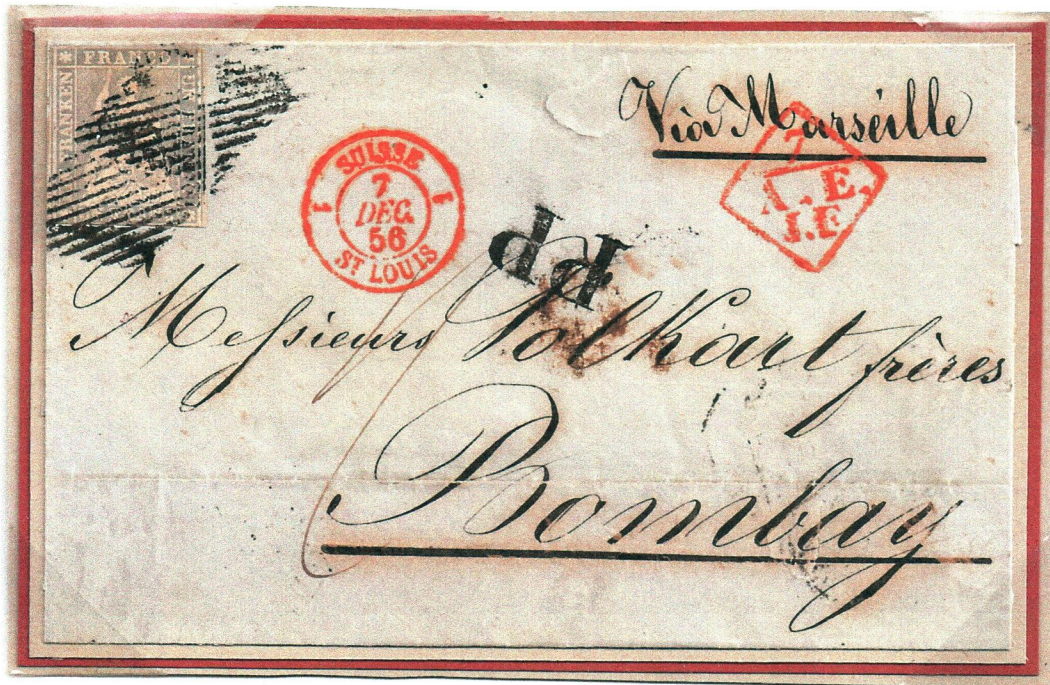 FRANCO
FRANKEN
Viâ Marseille
SUISSE
1 1
7
DEC.
56
ST LOUIS
PP
A.E.
I.F.
Messieurs Volkart frères
Bombay